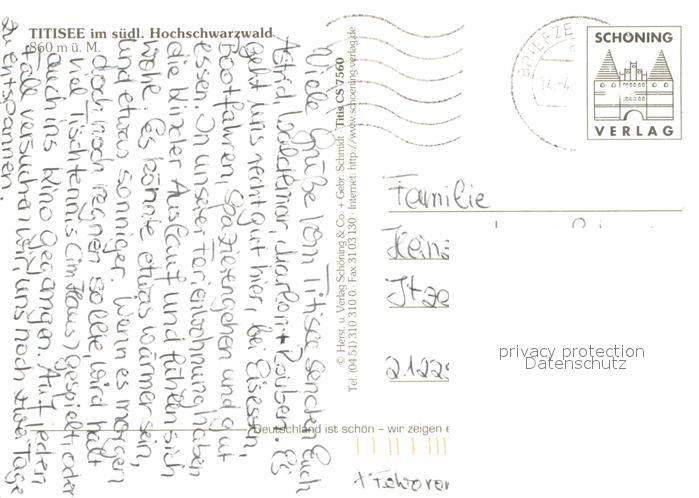 TITISEE im südl. Hochschwarzwald
860 m ü. M.
Viele Grüße vom Titisee senden Euch
Astrid, Waldemar, Marlon + Robben. Es
geht uns recht gut hier, bei Eisessen,
Bootfahren, Spazierengehen und gut
essen. In unserer Ferienwohnung haben
die Kinder Auslauf und fühlen sich
wohl. Es könnte etwas wärmer sein,
und etwas sonniger. Wenn es morgen
doch noch regnen sollte, wird halt
viel Tischtennis (im Haus) gespielt oder
auch ins Kino gegangen. Auf jeden
Fall versuchen wir, uns noch zwei Tage
zu entspannen.
© Herst. u. Verlag Schöning & Co. + Gebr. Schmidt · Titis CS 7560
Tel. (04 51) 310 310 0 · Fax 31 03 130 · Internet: http://www.schoening-verlag.de
BRIEFZE
14.-4.
SCHÖNING
VERLAG
Familie
Heinz
Itze
21229
privacy protection
Datenschutz
Deutschland ist schön – wir zeigen e